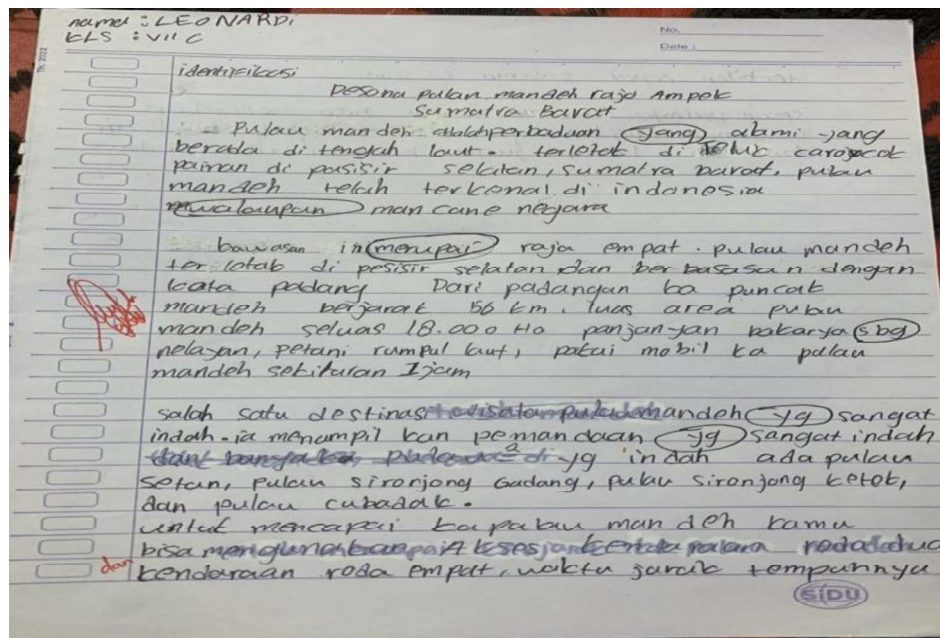 nama : LEONARDi
KLS : VII C
No.
Date :
Th. 2022
identifikasi
Pesona pulau mandeh raja Ampek
Sumatra Barat
- Pulau mandeh adalah perbaduan yang alami yang
berada di tengah laut. terletak di Teluk carocok
painan di pasisir selatan, sumatra barat, pulau
mandeh telah terkenal di indonesia
walaupan man cane negara
bawasan ini merupai raja empat. pulau mandeh
ter lotab di pesisir selatan dan ber basasan dengan
kata padang Dari padangan ka puncak
mandeh berjarak 56 km. luas area pulau
mandeh seluas 18.000 Ha panjan-yan bakarya sbg
nelayan, petani rumpul laut, pakai mobil ka pulau
mandeh sekituran 1 jam
salah satu destinasi mandeh yg sangat
indah. ia menampil kan pemandaan yg sangat indah
yg indah ada pulau
setan, pulau sironjong Gadang, pulau sironjong ketek,
dan pulau cubadak.
untuk mencapai ka palau man deh kamu
bisa Akses roda dua
dan kendaraan roda empat, waktu jarak tempunnya
SIDU